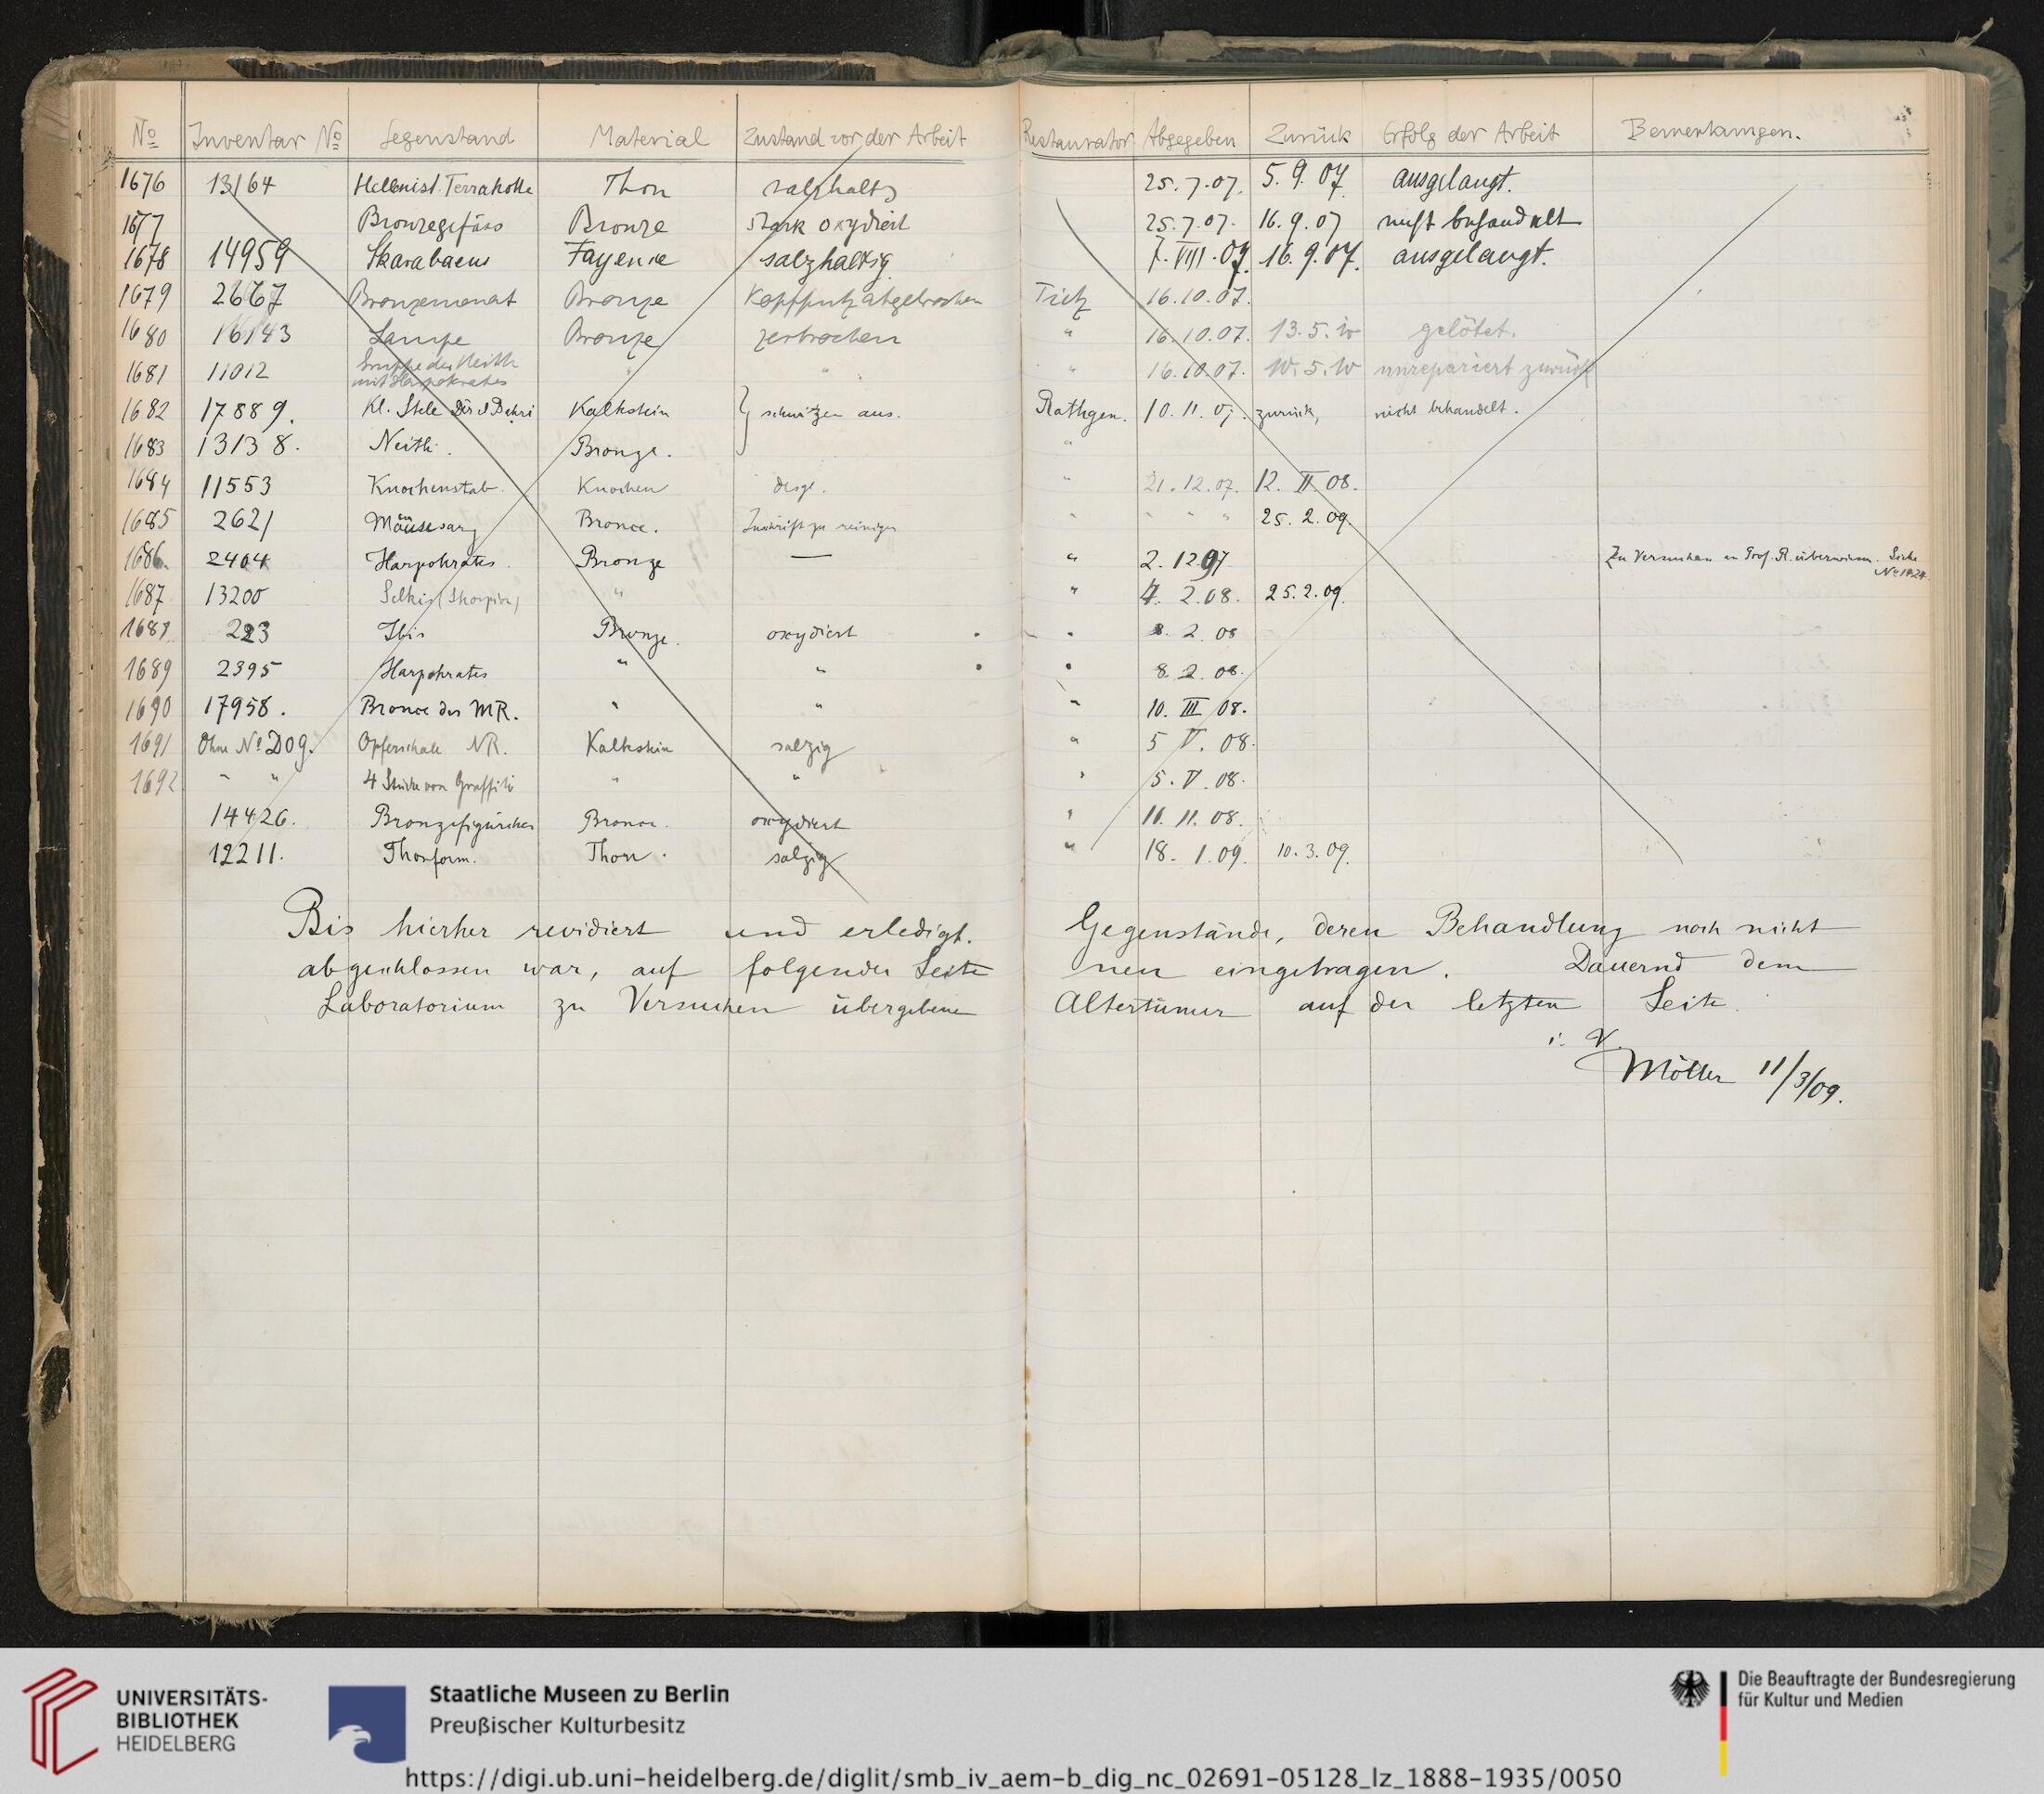 No Inventar No Gegenstand Material Zustand vor der Arbeit Restaurator Abgegeben Zurück Erfolg der Arbeit Bemerkungen.
1676 13164 Hellenist. Terrakotte Thon salzhaltig 25.7.07. 5.9.07 ausgelaugt.
1677 Bronzegefäss Bronze stark oxydiert 25.7.07. 16.9.07 nicht behandelt
1678 14959 Skarabaeus Fayence salzhaltig 7.VIII.07. 16.9.07. ausgelaugt.
1679 2667 Bronzemenat Bronze Kopfputz abgebrochen Tietz 16.10.07.
1680 16143 Lampe Bronze zerbrochen " 16.10.07. 13.5.10 gelötet.
1681 11012 Gruppe der Neith mit Harpokrates " " " 16.10.07. 10.5.10 unrepariert zurück
1682 17889. Kl. Stele Dêr el Bahri Kalkstein } schwitzen aus. Rathgen. 10.11.07. zurück, nicht behandelt.
1683 13138. Neith. Bronze. "
1684 11553 Knochenstab. Knochen desgl. " 21.12.07. 12.II.08.
1685 2621 Mäusesarg Bronce. Inschrift zu reinigen " " " " 25.2.09.
1686. 2404 Harpokrates. Bronze — " 2.12.07 Zu Versuchen an Prof. R. überwiesen. Siehe No 1424.
1687 13200 Selkis (Skorpion) " " 4.2.08. 25.2.09.
1688 223 Ibis Bronze. oxydiert " 8.2.08
1689 2395 Harpokrates " " " 8.2.08.
1690 17958. Bronce des MR. " " " 10.III.08.
1691 Ohne No D09. Opferschale NR. Kalkstein salzig " 5 V. 08.
1692 " " 4 Stücke von Graffiti " " " 5.V.08.
14426. Bronzefigürchen Bronce. oxydiert " 11.11.08.
12211. Thonform. Thon. salzig " 18.1.09. 10.3.09.
Bis hierher revidiert und erledigt. Gegenstände, deren Behandlung noch nicht
abgeschlossen war, auf folgender Seite neu eingetragen. Dauernd dem
Laboratorium zu Versuchen übergebene Altertümer auf der letzten Seite.
i. V.
Möller 11/3/09.
UNIVERSITÄTS-
BIBLIOTHEK
HEIDELBERG
Staatliche Museen zu Berlin
Preußischer Kulturbesitz
Die Beauftragte der Bundesregierung
für Kultur und Medien
https://digi.ub.uni-heidelberg.de/diglit/smb_iv_aem-b_dig_nc_02691-05128_lz_1888-1935/0050